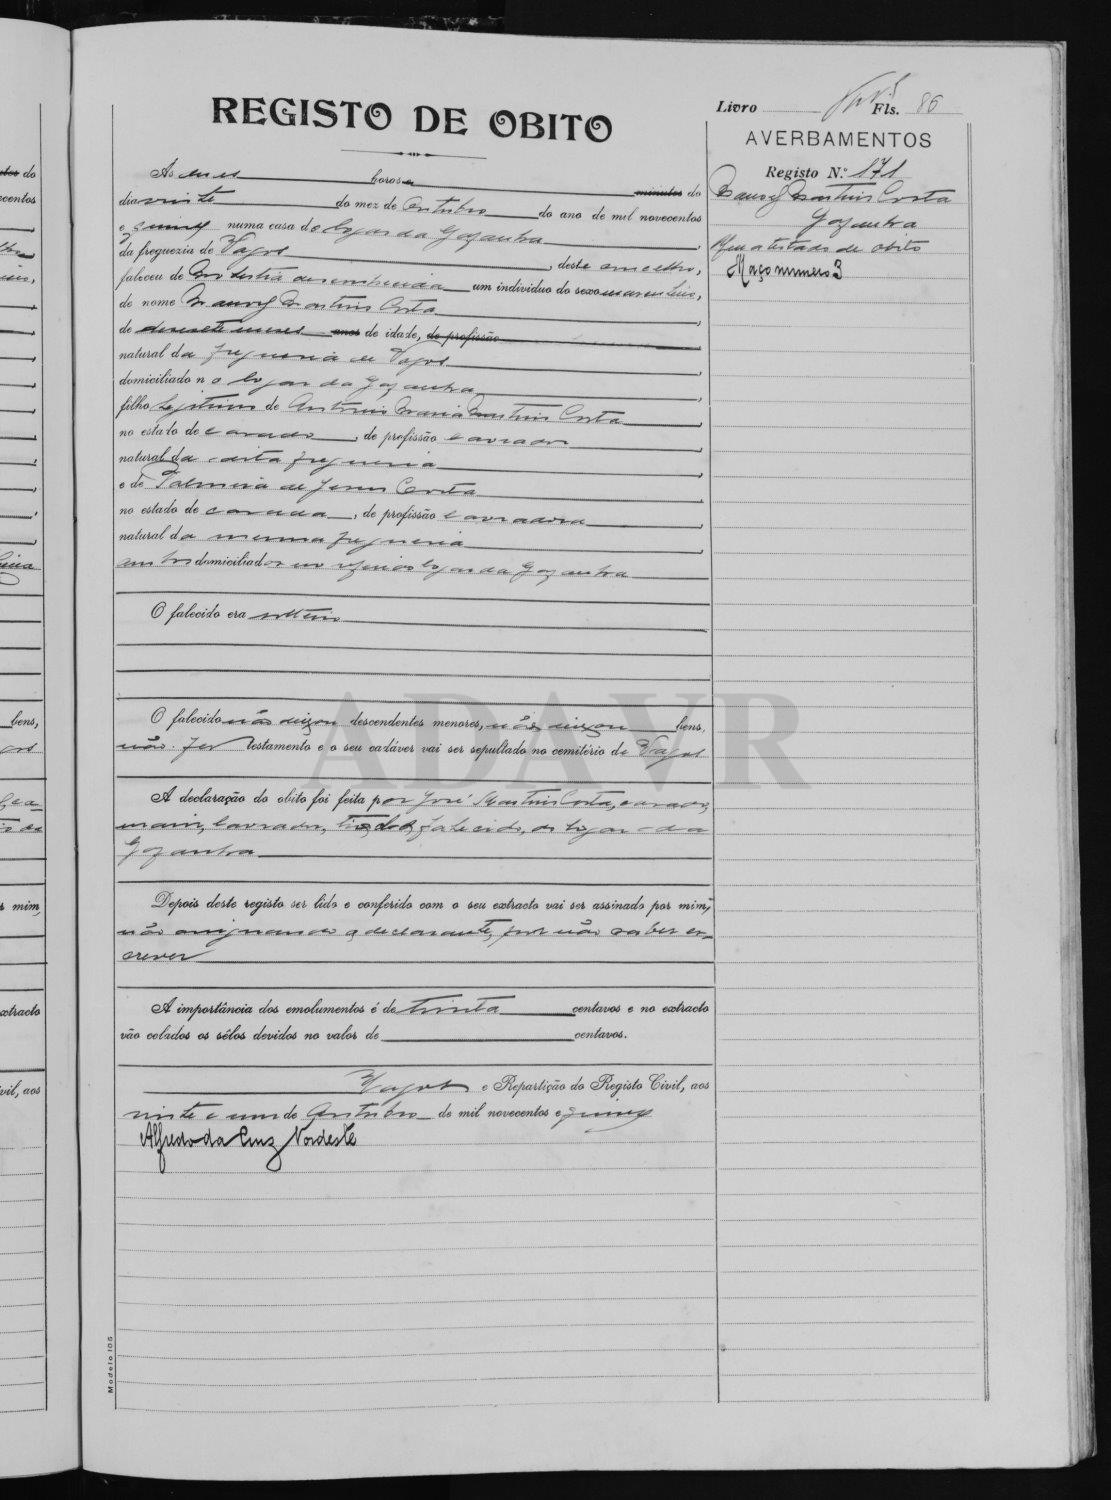 REGISTO DE OBITO
Livro Fls. 86
AVERBAMENTOS
Registo N.º 171
Manoel Martins Costa
Gafanha
atestado de obito
Maço numero 3
As horas minutos do
dia vinte do mez de Outubro do ano de mil novecentos
e quinze numa casa do logar da Gafanha,
da freguezia de Vagos, deste concelho,
faleceu de molestia desconhecida um individuo do sexo masculino,
de nome Manoel Martins Costa,
de dezesete mezes anos de idade, de profissão
natural da freguezia de Vagos,
domiciliado no logar da Gafanha,
filho legitimo de Antonio Maria Martins Costa,
no estado de casado, de profissão lavrador,
natural da desta freguezia,
e de Palmira de Jesus Costa,
no estado de casada, de profissão lavradora,
natural da mesma freguezia,
ambos domiciliados no logar da Gafanha
O falecido era solteiro
O falecido não deixou descendentes menores, não deixou bens,
não fez testamento e o seu cadáver vai ser sepultado no cemitério de Vagos
A declaração do obito foi feita por José Martins Costa, casado,
maior, lavrador, tio do falecido, do logar da
Gafanha
Depois deste registo ser lido e conferido com o seu extracto vai ser assinado por mim,
não assignando o declarante, por não saber es-
crever
A importância dos emolumentos é de trinta centavos e no extracto
vão colados os sêlos devidos no valor de centavos.
Vagos e Repartição do Registo Civil, aos
vinte e um de Outubro de mil novecentos e quinze
Alfredo da Cruz Nordeste
ADAVR
Modelo 105